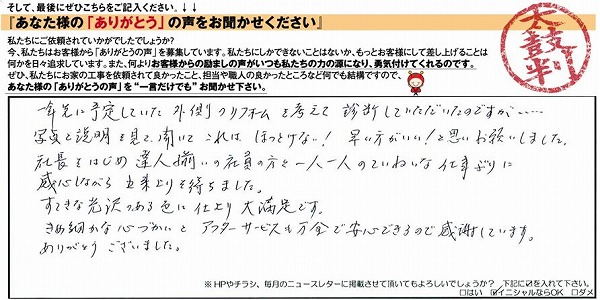 そして、最後にぜひこちらをご記入ください。↓↓
『あなた様の「ありがとう」の声をお聞かせください』
私たちにご依頼されていかがでしたでしょうか?
今、私たちはお客様から「ありがとうの声」を募集しています。私たちにしかできないことはないか、もっとお客様にして差し上げることは
何かを日々追求しています。また、何よりお客様からの励ましの声がいつも私たちの力の源になり、勇気付けてくれるのです。
ぜひ、私たちにお家の工事を依頼されて良かったこと、担当や職人の良かったところなど何でも結構ですので、
あなた様の「ありがとうの声」を"一言だけでも"お聞かせ下さい。
太鼓判
一年先に予定していた外側のリフォームを考えて診断していただいたのですが……
写真と説明を見て、聞いてこれはほっとけない!早い方がいい!と思いお願いしました。
社長をはじめ達人揃いの社員の方々一人一人のていねいな仕事ぶりに
感心しながら出来上りを待ちました。
すてきな光沢のある色に仕上り大満足です。
きめ細かな心づかいとアフターサービスも万全で安心できるので感謝しています。
ありがとうございました。
※HPやチラシ、毎月のニュースレターに掲載させて頂いてもよろしいでしょうか? 下記に☑を入れて下さい。
□はい ☑イニシャルならOK □ダメ